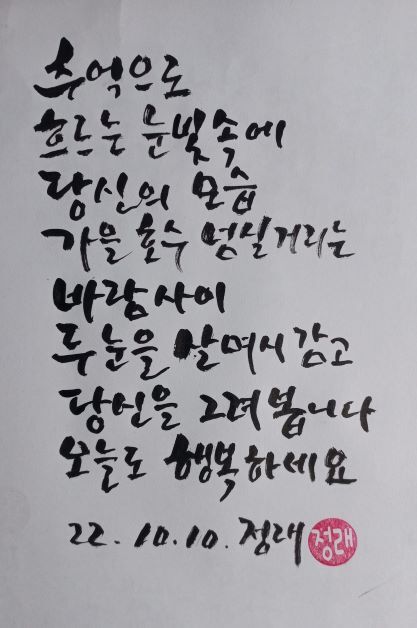 추억으로
흐르는 눈빛속에
당신의 모습
가을 호수 넘실거리는
바람 사이
두 눈을 살며시 감고
당신을 그려 봅니다
오늘도 행복하세요
22. 10. 10. 정래
정래